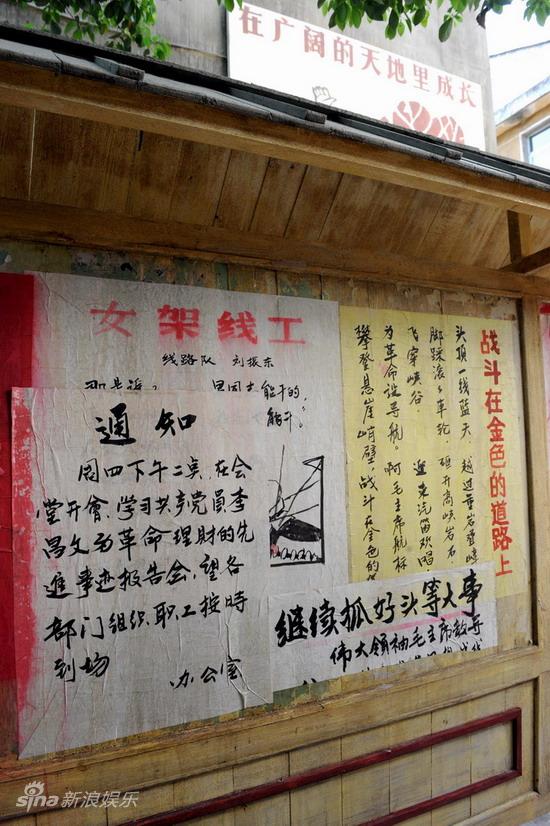 在广阔的天地里成长
女架线工
线路队 刘振东
能干的,
通知
周四下午二点,在会
堂开會,学习共产党员李
昌文为革命理财的先
進事迹报告会,望各
部门组织职工按時
到场
办公室
战斗在金色的道路上
头顶一线蓝天
脚踩滚滚车轮
飞穿峡谷
为革命设导航。啊毛主席航标
攀登悬崖峭壁,战斗在金色的
继续抓好头等大事
伟大领袖毛主席教导
sina 新浪娱乐